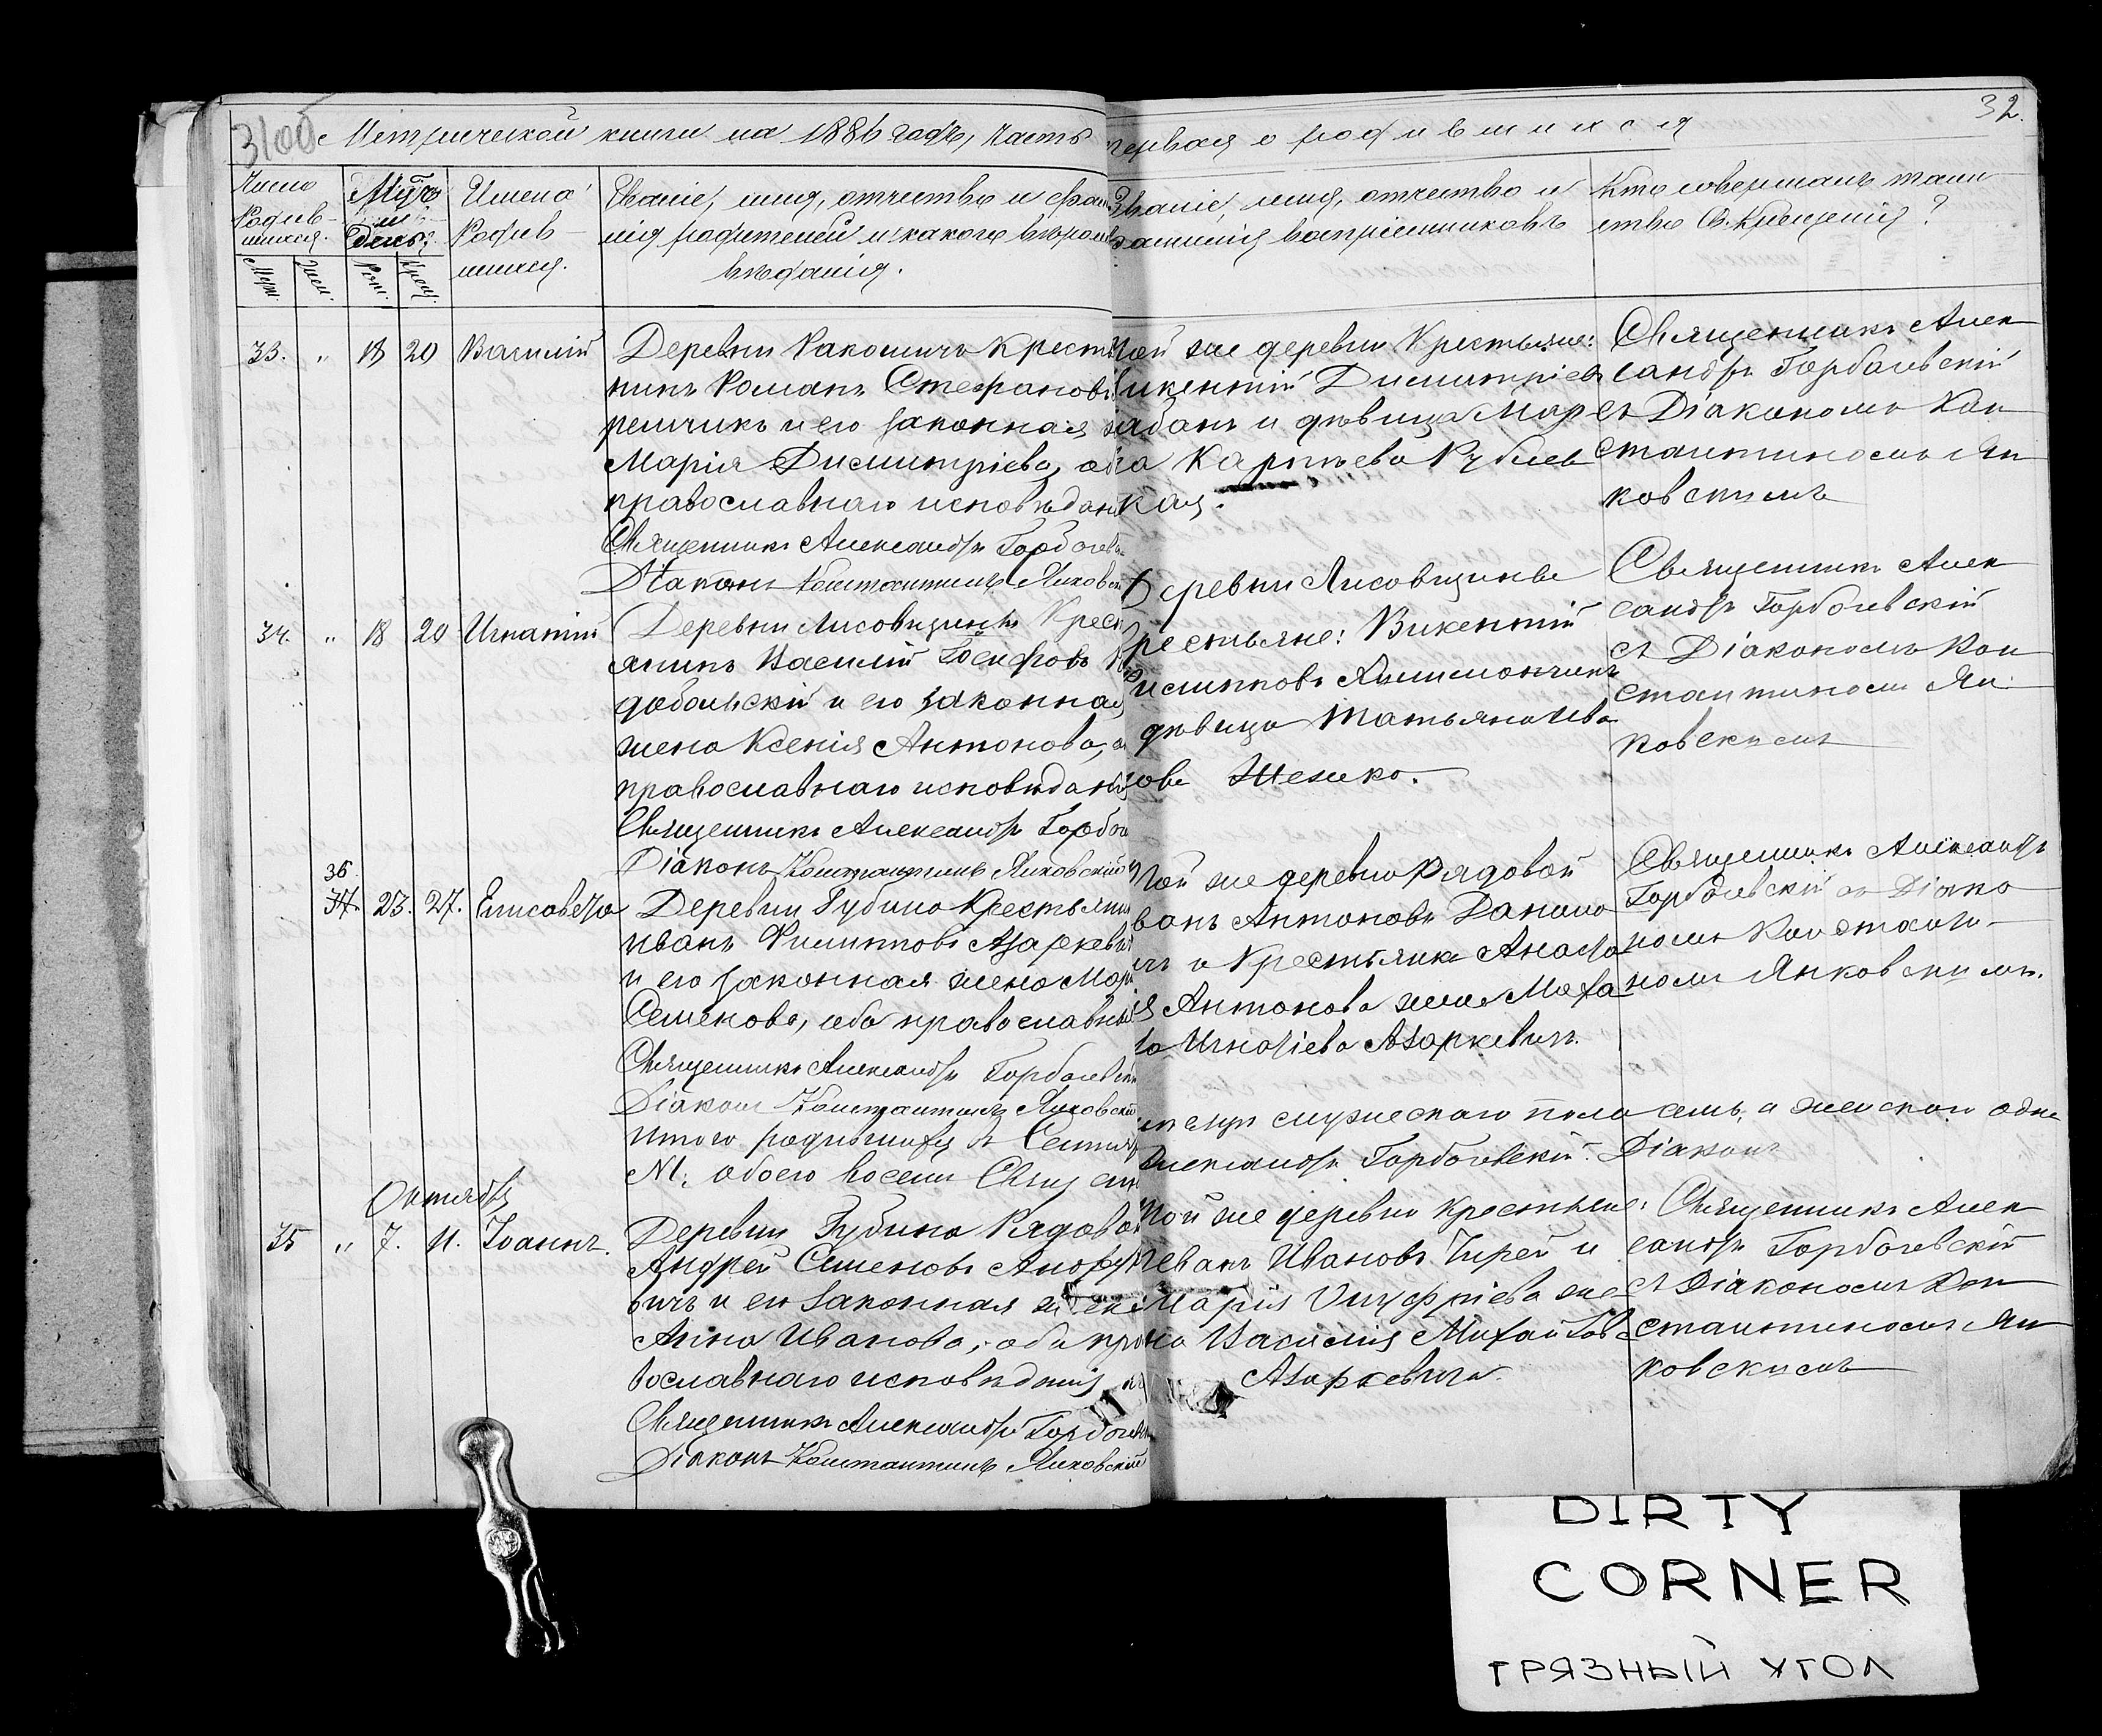 Метрической книги на 1886 годъ, Часть
первая о родившихся
32.
Число
Родив-
шихся.
Муж.
Жен.
Мѣсяцъ
и
день
Рож.
Крещ.
Имена
Родив-
шихся.
Званіе, имя, отчество и фами
лія родителей и какого вѣроис
вѣданія.
Званіе, имя, отчество и
фамилія воспріемниковъ
Кто совершалъ таин
ство Св. Крещенія?
33. " 18 20 Василій
Деревни Ракошичъ Крестья
нинъ Романъ Стефановъ
решчикъ и его законная
Марія Димитріева, об
православнаго исповѣдан
Священникъ Александръ Горбачев
Діаконъ Константинъ Янковск
той же деревни Крестьяне:
Викентій Димитріевъ
и дѣвица Мар
Карпъева
кая.
Священникъ Алек
сандръ Горбачевскій
съ Діакономъ Кон
стантиномъ Ян
ковскимъ
34. " 18 20 Игнатій
Деревни Лисовщины Крес
янинъ Василій Іосифовъ
добольскій и его законная
жена Ксенія Антонова, о
православнаго исповѣданія
Священникъ Александръ Горбач
Діаконъ Константинъ Янковскій
Деревни Лисовщины
рестьяне: Викентій
Филипповъ
дѣвица Татьяна Ива
нова Шешко.
Священникъ Алек
сандръ Горбачевскій
съ Діакономъ Кон
стантиномъ Ян
ковскимъ
36
37. 23. 27. Елисавета
Деревни Губино Крестьянин
Иванъ Филипповъ Азаркеви
и его законная жена Мар
Семенова, оба православны
Священникъ Александръ Горбачевск
Діаконъ Константинъ Янковскій
той же деревни Рядовой
ванъ Антоновъ Данило
чъ и Крестьянка Анаста
ія Антонова жена Маха
Игнатіева Азаркевичъ.
Священникъ Александръ
Горбачевскій съ Діако
номъ Константи-
номъ Янковскимъ.
Итого родившихся въ Сентяб
мужескаго пола семь, а женскаго одна
М. обоего восемь Свящ
Александръ Горбачевскій. Діаконъ
Октябрь
35 " 7. 11. Іоаннъ.
Деревни Губино Рядово
Андрей Семеновъ
вичъ и его законная жена
Анна Иванова, оба пра
вославнаго исповѣданія
Священникъ Александръ Горбачев
Діаконъ Константинъ Янковскій
той же деревни Крестьяне:
Иванъ Ивановъ Чирей и
Марія Онуфріева же
на Василія Михайлов
Азаркевича.
Священникъ Алек
сандръ Горбачевскій
съ Діакономъ Кон
стантиномъ Ян
ковскимъ
DIRTY
CORNER
ГРЯЗНЫЙ УГОЛ